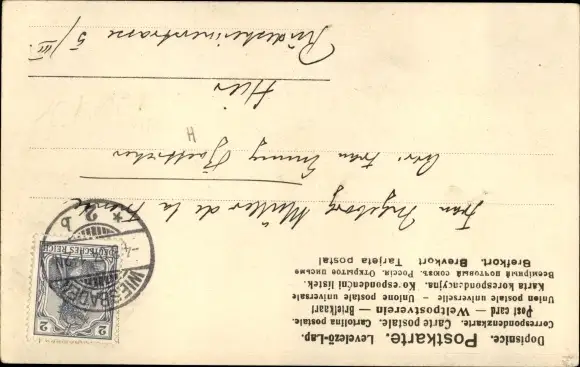 Dopisnice. Postkarte. Levelező-Lap.
Correspondenzkarte. Carte postale. Cartolina postale.
Post card — Weltpostverein — Briefkaart
Union postale universelle – Unione postale universale
Karta korespondencyjna. Korespondenční lístek.
Всемірный почтовый союзъ. Россія. Открытое письмо
Brefkort. Brevkort. Tarjeta postal
Frau Ingeborg Müller de la
Frau Emmy
H
Hier
Rüdesheimerstrasse 5/III
WIESBADEN
* 2 b
DEUTSCHES REICH
2 2